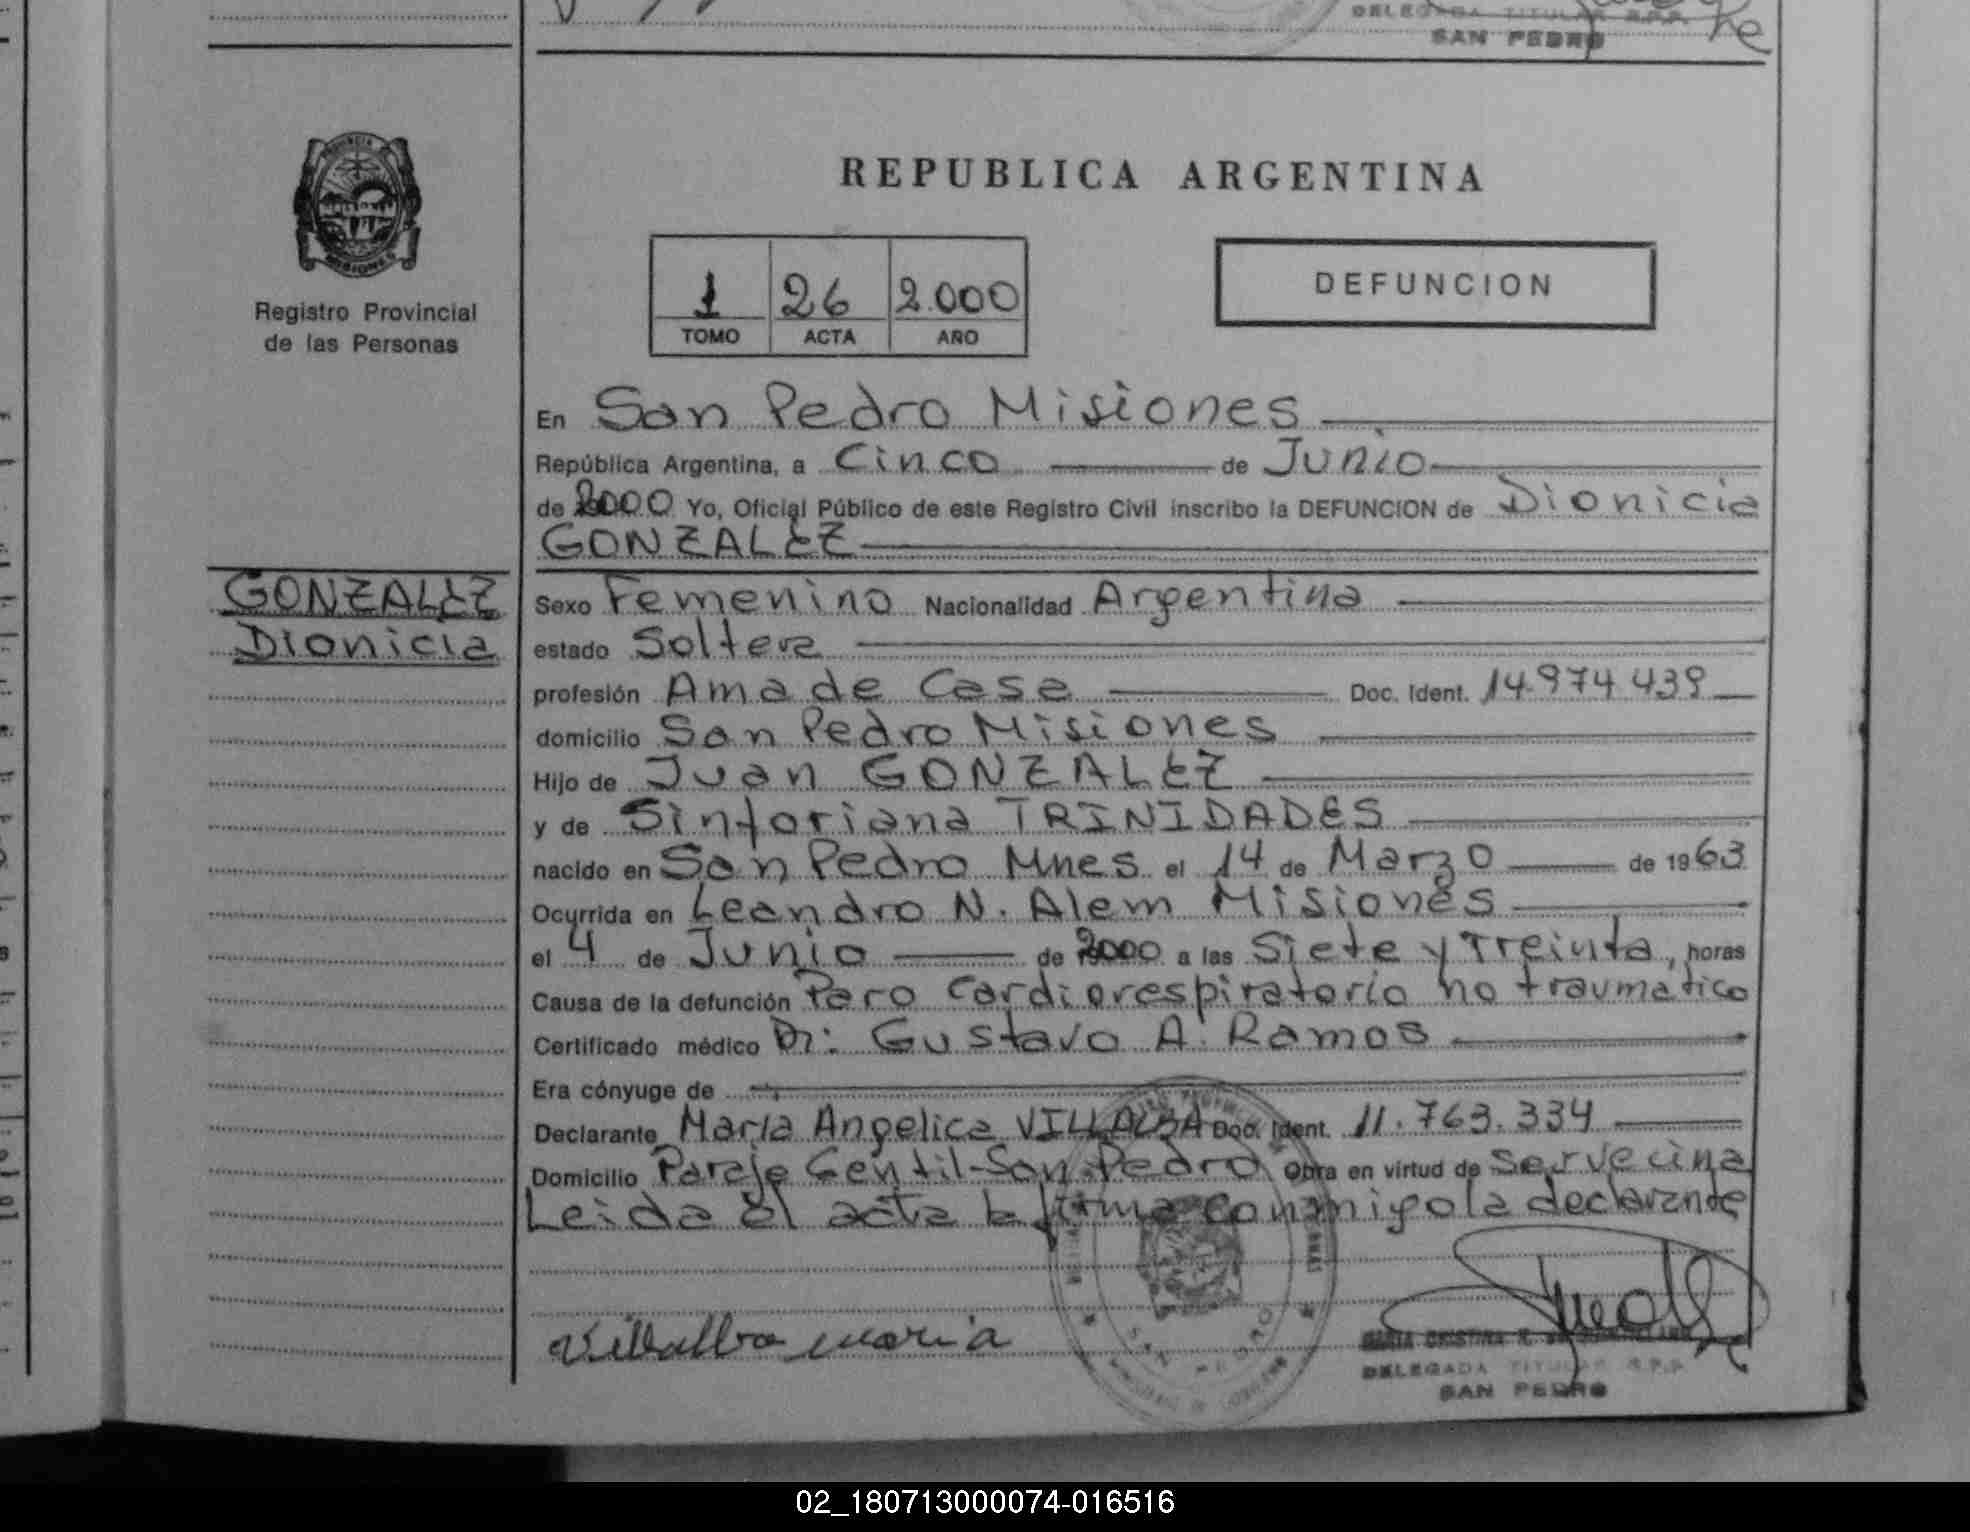 DELEGADA TITULAR R.P.P.
SAN PEDRO
PROVINCIA DE
MISIONES
Registro Provincial
de las Personas
REPUBLICA ARGENTINA
1 26 2.000
TOMO ACTA AÑO
DEFUNCION
En San Pedro Misiones
República Argentina, a Cinco de Junio
de 2000 Yo, Oficial Público de este Registro Civil inscribo la DEFUNCION de Dionicia
GONZALEZ
GONZALEZ
Dionicia
Sexo Femenino Nacionalidad Argentina
estado Soltera
profesión Ama de Casa Doc. Ident. 14.974.439
domicilio San Pedro Misiones
Hijo de Juan GONZALEZ
y de Sinforiana TRINIDADES
nacido en San Pedro Mnes. el 14 de Marzo de 1963
Ocurrida en Leandro N. Alem Misiones
el 4 de Junio de 2000 a las Siete y Treinta, horas
Causa de la defunción Paro Cardiorespiratorio no traumatico
Certificado médico Dr: Gustavo A. Ramos
Era cónyuge de
Declarante Maria Angelica VILLALBA Doc. Ident. 11.763.334
Domicilio Paraje Gentil-San Pedro Obra en virtud de ser vecina
Leida el acta la firma conmigo la declarante
Villalba maria
SAN PEDRO
MARIA CRISTINA R.
DELEGADA TITULAR R.P.P.
SAN PEDRO
02_180713000074-016516